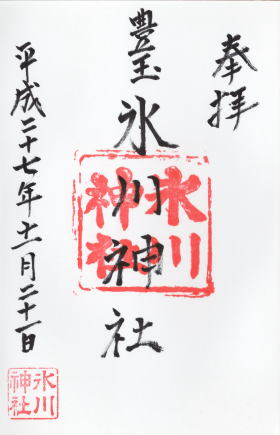 奉拝
豊玉氷川神社
氷川神社
平成二十七年十一月二十一日
氷川神社